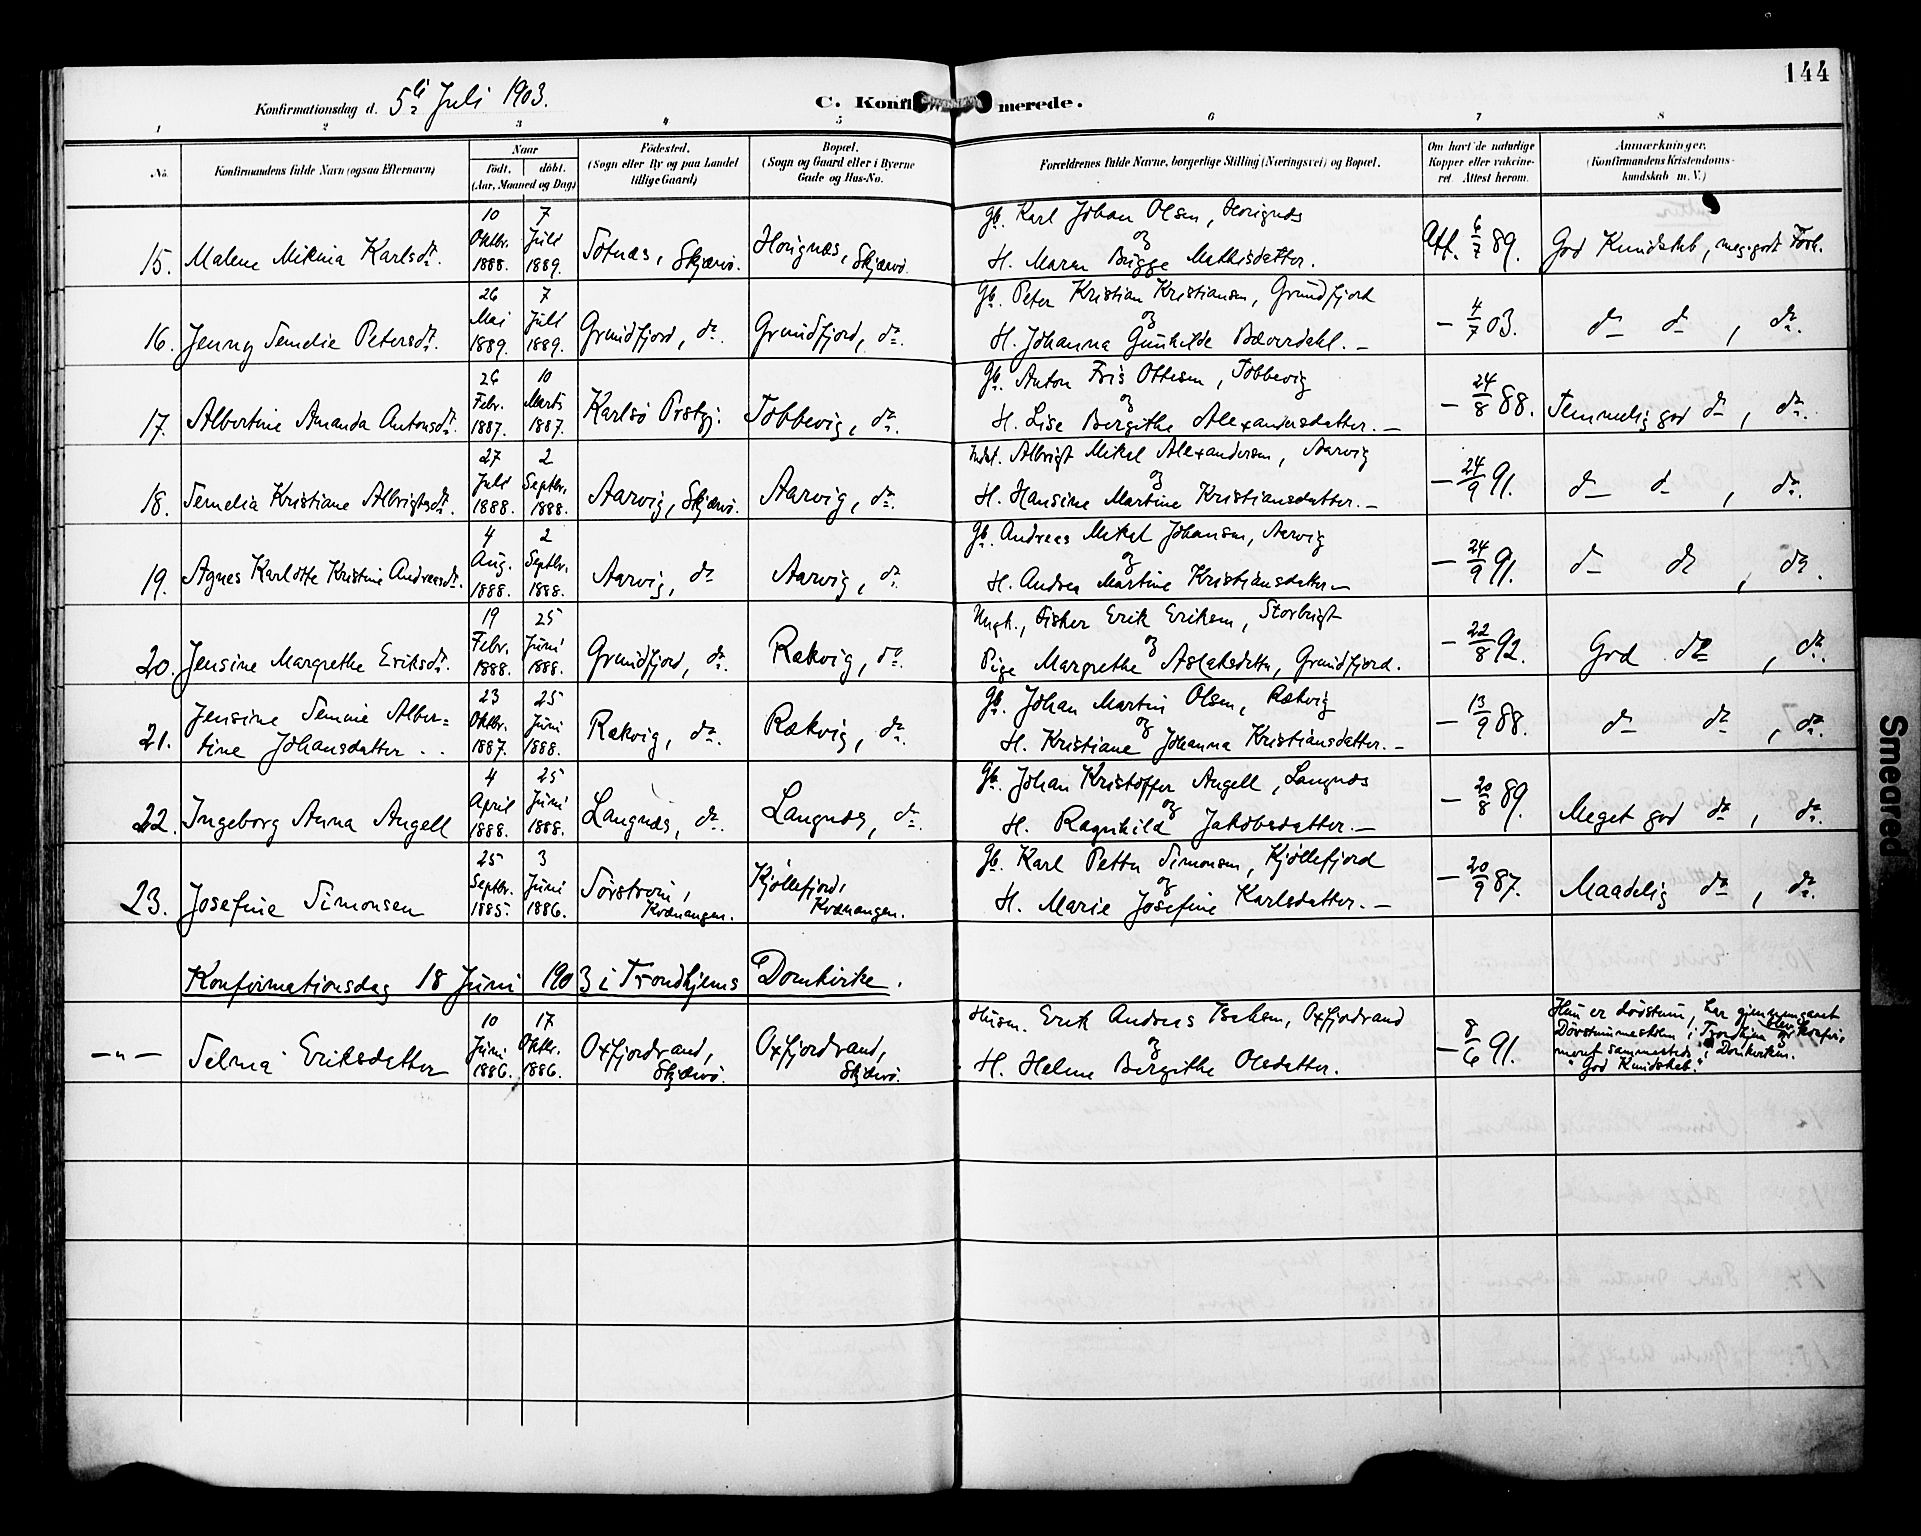 144
Konfirmationsdag d. 5te Juli 1903.
C. Konfirmerede.
1 2 3 4 5 6 7 8
No.
Konfirmandens fulde Navn (ogsaa Efternavn)
Naar
født. døbt.
(Aar, Maaned og Dag)
Fødested.
(Sogn eller By og paa Landet
tillige Gaard)
Bopæl.
(Sogn og Gaard eller i Byerne
Gade og Hus-No.
Forældrenes fulde Navne, borgerlige Stilling (Næringsvei) og Bopæl.
Om havt de naturlige
Kopper eller vakcine-
ret. Attest herom.
Anmærkninger.
(Konfirmandens Kristendoms-
kundskab m. V.)
15. Malene Mikina Karlsdr. 10 Oktbr. 1888. 7 Juli 1889. Sotnæs, Skjærvø. Horignæs, Skjærvø.
Gb. Karl Johan Olsen, Horignæs
og
H. Maren Brigge Mathisdatter.
Att. 6/7 89. God Kundskab, meg. godt Forh.
16. Jenny Semelie Petersdr. 26 Mai 1889. 7 Juli 1889. Grundfjord, do. Grundfjord, do.
Gb. Peter Kristian Kristiansen, Grundfjord
og
H. Johanna Gunhilde Bæverdahl. —
— 4/7 03. do do, do.
17. Albertine Amanda Antonsdr. 26 Febr. 1887. 10 Marts 1887. Karlsø Prstgj. Tobbevig, do.
Gb. Anton Fris Ottesen, Tobbevig
og
H. Lise Bergithe Alexandersdatter. —
— 24/8 88. Temmelig god do, do.
18. Semelia Kristiane Albrigtsdr. 27 Juli 1888. 2 Septbr. 1888. Aarvig, Skjærvø. Aarvig, do.
Indst. Albrigt Mikal Alexandersen, Aarvig
og
H. Hansine Martine Kristiansdatter. —
— 24/9 91. do do, do.
19. Agnes Karlotte Kristine Andreasdr. 4 Aug. 1888. 2 Septbr. 1888. Aarvig, do Aarvig, do.
Gb. Andreas Mikal Johansen, Aarvig
og
H. Andrea Martine Kristiansdatter —
— 24/9 91. do do, do.
20. Jensine Margrethe Eriksdr. 19 Febr. 1888. 25 Juni 1888. Grundfjord, do. Rækvig, do.
Ungk., Fisker Erik Eriksen, Storbrigt
og
Pige Margrethe Aslaksdatter, Grundfjord.
— 22/8 92. God do, do.
21. Jensine Semine Alber=
tine Johansdatter . . 23 Oktbr. 1887. 25 Juni 1888. Rækvig, do. Rækvig, do.
Gb. Johan Martin Olsen, Rækvig
og
H. Kristiane Johanna Kristiansdatter. —
— 13/9 88. do do, do.
22. Ingeborg Anna Angell 4 April 1888. 25 Juni 1888. Langnæs, do. Langnæs, do.
Gb. Johan Kristoffer Angell, Langnæs
og
H. Ragnhild Jakobsdatter. —
— 20/8 89. Meget god do, do.
23. Josefine Simonsen 25 Septbr. 1885. 3 Juni 1886. Sørstrøm, Kvænangen. Kjøllefjord, Kvænangen.
Gb. Karl Petter Simonsen, Kjøllefjord
og
H. Marie Josefine Karlsdatter. —
— 20/9 87. Maadelig do, do.
Konfirmationsdag 18 Juni 1903 i Trondhjems Domkirke.
— " — Selma Eriksdatter 10 Juni 1886. 17 Oktbr. 1886. Oxfjordvand, Skjærvø. Oxfjordvand, Skjærvø.
Husm. Erik Andreas Isaksen, Oxfjordvand
og
H. Helene Bergithe Olsdatter.
— 8/6 91.
Hun er døvstum, har gjennemgaaet
Døvstummeskolen i Trondhjem og blev konfir=
meret sammesteds i Domkirken.
"God Kundskab."
Smeared